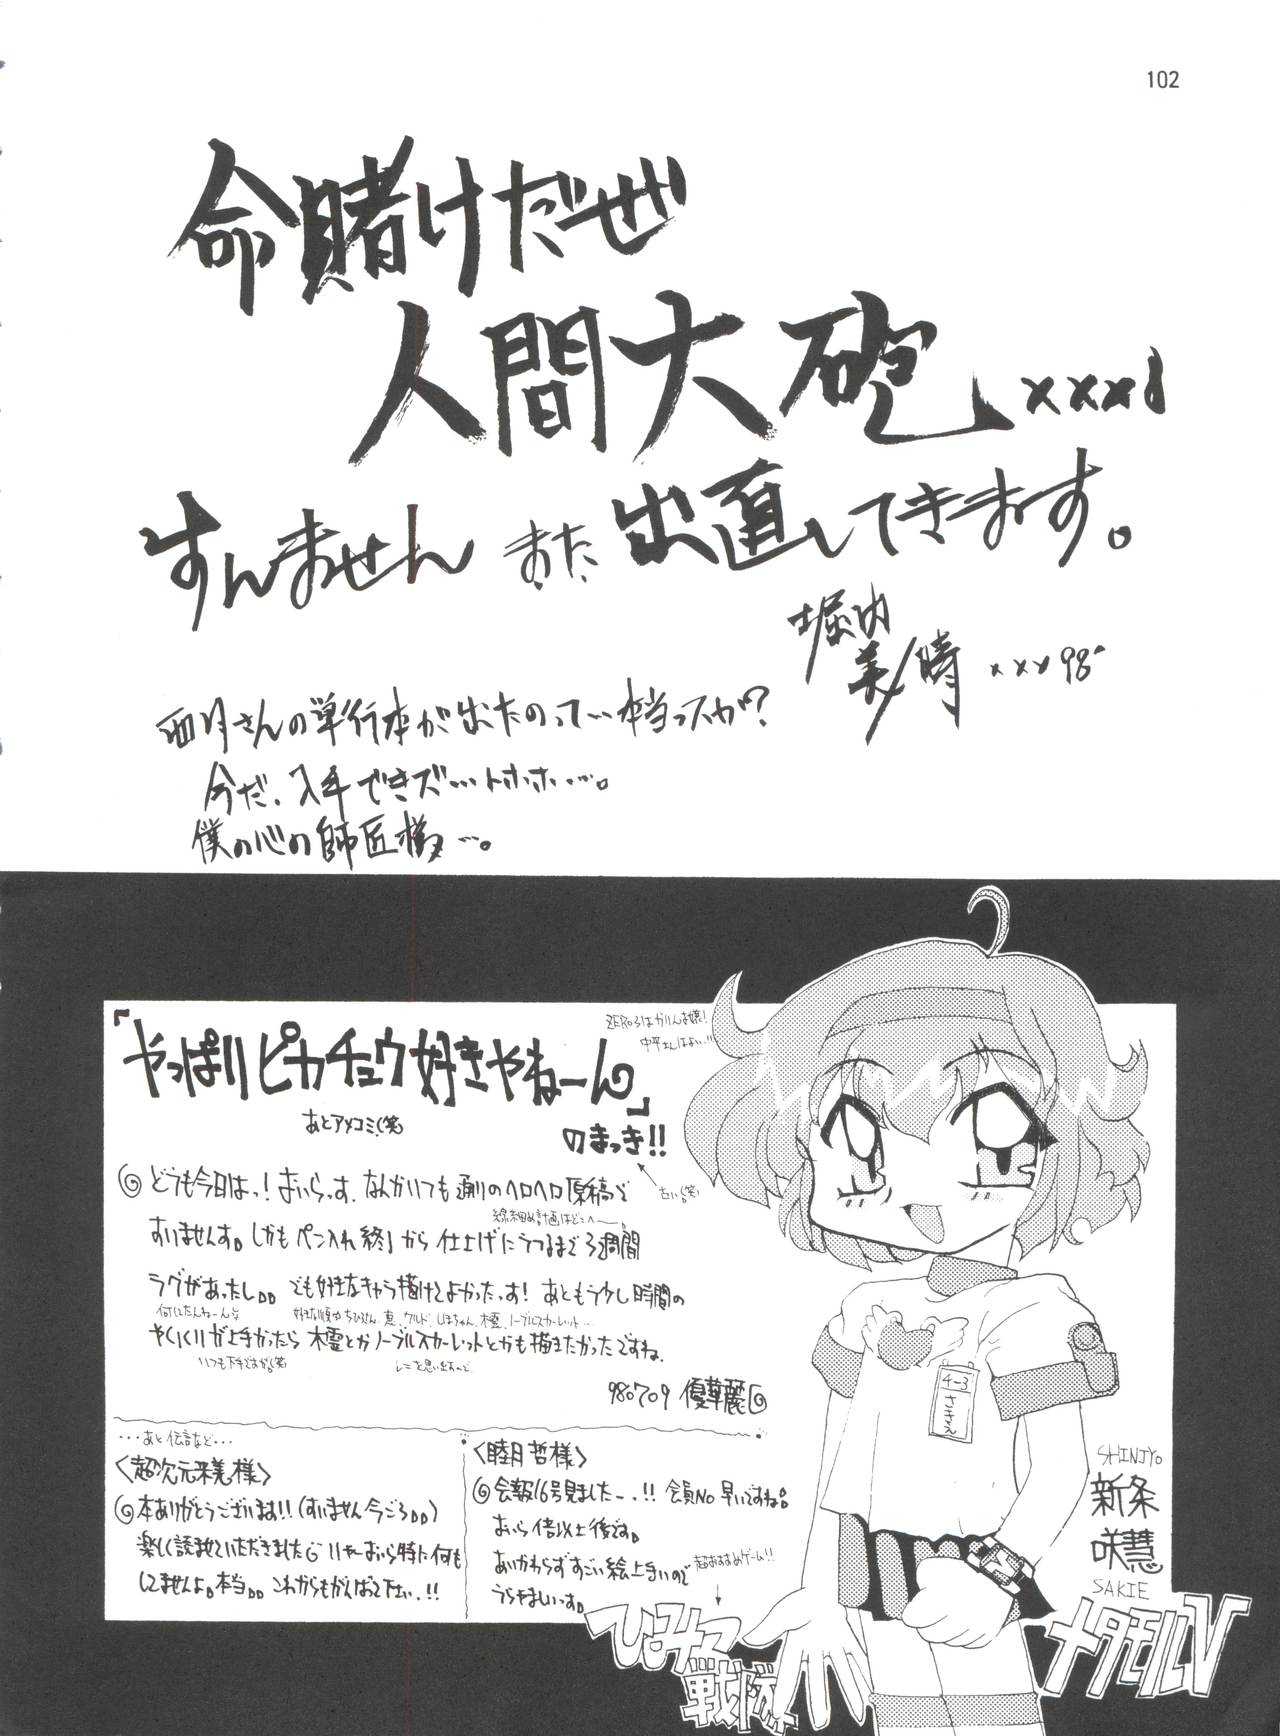 102
命賭けだぜ
人間大砲xxx!
すんません また 出直してきます。
堀内
美晴 xxx98'
西月さんの単行本が出たのって…本当っスか?
今だ、入手できズ…トホホ…。
僕の心の師匠様…。
『やっぱりピカチュウ好きやねーん』
あとアメコミ(笑
のまっき!!
古い(笑)
どうも今日はっ! おいらっす。なんかいつも通りのヘロヘロ原稿で
線細め計画はどこへ〜。
すいませんす。しかもペン入れ終了から仕上げにうつるまで3週間
ラグがあったし。。でも好きなキャラ描けてよかったっす! あともう少し時間の
何してたんねーん
やりくりが上手かったら 木霊とかノーブルスカーレットとかも描きたかったですね。
いつも下手ですが(笑
980709 優華麗
…あと伝言など…
〈超次元來美様〉
本ありがとうございます!! (すいません今ごろ。。)
楽しく読ませていただきました いやーおいら特に何も
してませんよ。本当。。これからもがんばって下さい.!!
〈睦月哲様〉
会報16号見ましたー.!! 会員No早いですね。
おいら倍以上後です。
あいかわらずすごい絵上手いので
うらやましいっす。
超おすすめゲーム!!
4-3
さきえ
SHINJYO
新条
咲慧
SAKIE
ひみつ
戦隊
メタモルV